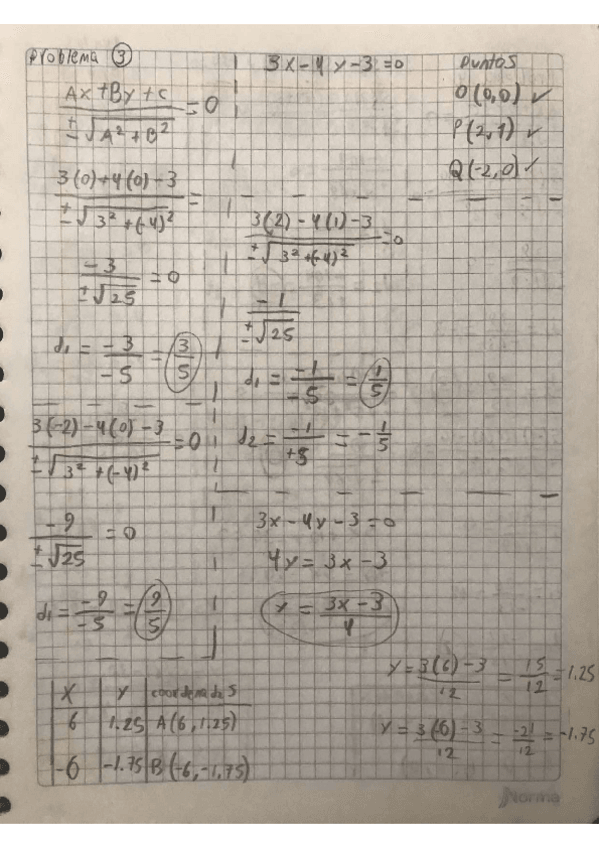 Problema ③
Ax + By + C / ± √A² + B² = 0
3(0)+4(0)-3 / ± √3² +(-4)² =
-3 / ± √25 = 0
d₁ = -3 / -5 = 3/5
3(-2)-4(0)-3 / ± √3² +(-4)² = 0
-9 / ± √25 = 0
d₁ = -9 / -5 = 9/5
3x-4y-3=0
Puntos
O(0,0) ✓
P(2,1) ✓
Q(-2,0) ✓
3(2)-4(1)-3 / ± √3² +(-4)² = 0
-1 / ± √25
d₁ = -1 / -5 = 1/5
d₂ = -1 / +5 = -1/5
3x-4y-3=0
4y = 3x-3
y = 3x-3 / 4
y = 3(6)-3 / 12 = 15/12 = 1.25
y = 3(-6)-3 / 12 = -21/12 = -1.75
x y coordenadas
6 1.25 A(6,1.25)
-6 -1.75 B(-6,-1.75)
Norma